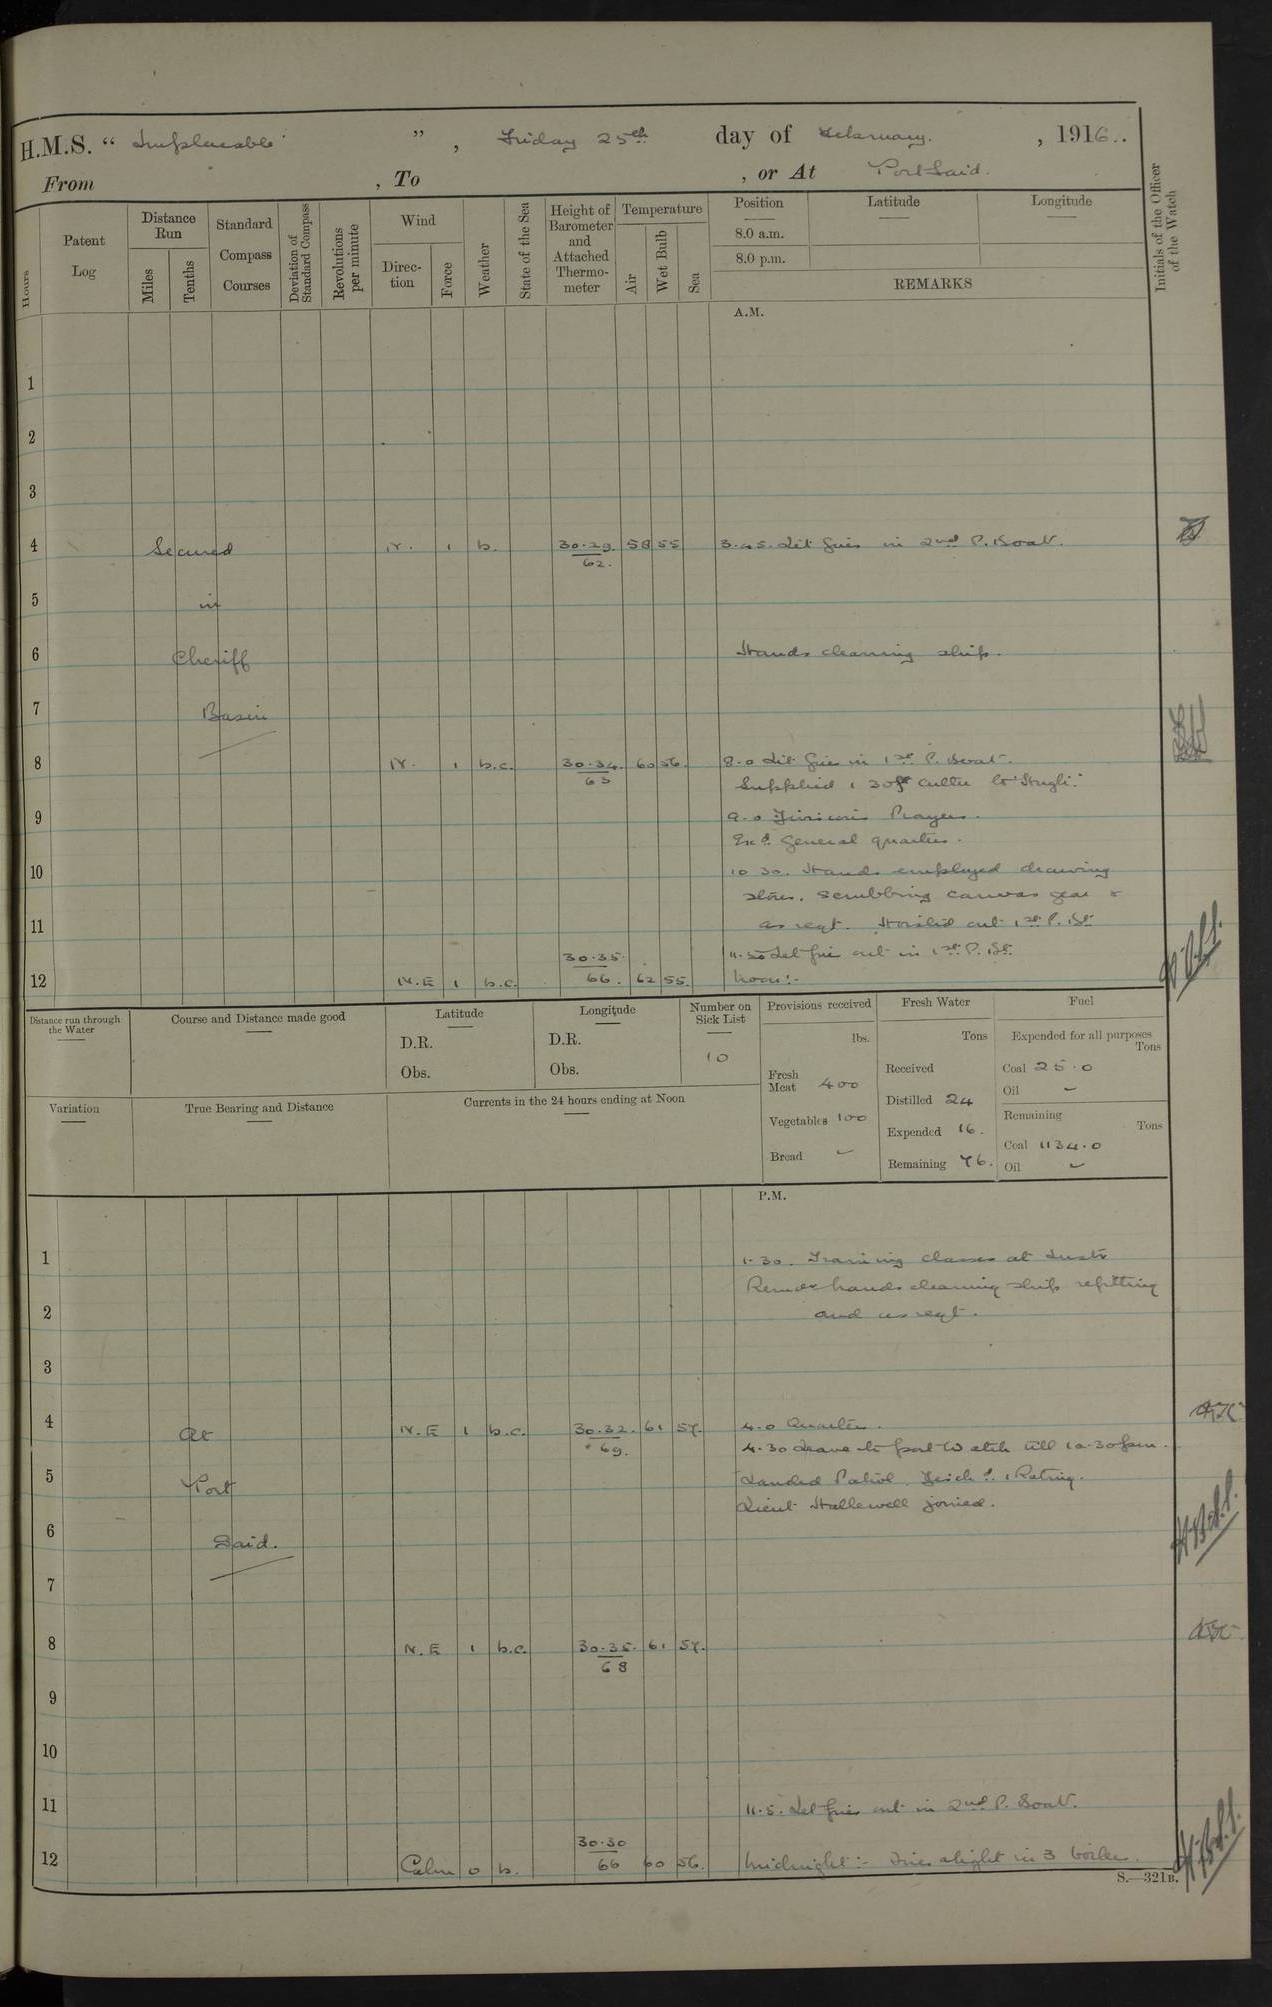 H.M.S. “ Implacable ” , Friday 25th day of February. , 1916..
From , To , or At Port Said.
Hours
Patent Log
Distance Run
Miles
Tenths
Standard Compass Courses
Deviation of Standard Compass
Revolutions per minute
Wind
Direction
Force
Weather
State of the Sea
Height of Barometer and Attached Thermometer
Temperature
Air
Wet Bulb
Sea
Position
8.0 a.m.
8.0 p.m.
Latitude
Longitude
REMARKS
Initials of the Officer of the Watch
A.M.
1
2
3
4 Secured N. 1 b. 30.29. 62. 58 55 3.45. Lit fires in 2nd P. Boat.
5 in
6 Cheriff Hands cleaning ship.
7 Basin
8 N. 1 b.c. 30.34. 63 60 56. 8.0 Lit fires in 1st P. Boat.
Supplied 1 30ft Cutter to "Hugli".
9 9.0 Divisions Prayers.
Exd. General quarters.
10 10 30. Hands employed drawing
stores. Scrubbing canvas gear &
11 as reqt. Hoisted out 1st P. Bt.
11.50 Let fire out in 1st P. Bt.
12 N.E 1 b.c. 30.35. 66. 62 55. Noon:-
Distance run through the Water
Course and Distance made good
Latitude
D.R.
Obs.
Longitude
D.R.
Obs.
Number on Sick List
10
Provisions received
lbs.
Fresh Meat 400
Vegetables 100
Bread -
Fresh Water
Tons
Received
Distilled 24
Expended 16.
Remaining 76.
Fuel
Expended for all purposes
Tons
Coal 25.0
Oil -
Remaining
Tons
Coal 1134.0
Oil -
Variation
True Bearing and Distance
Currents in the 24 hours ending at Noon
P.M.
1 1.30. Training classes at Instr
Remdr hands cleaning ship refitting
2 and as reqt.
3
4 At N.E 1 b.c. 30.32. 69. 61 57. 4.0 Quarters.
4.30 Leave to port Watch till 10.30pm.
5 Port Landed Patrol. Disch d. 1 Rating.
Lieut Hallewell joined.
6 Said.
7
8 N.E 1 b.c. 30.35. 68 61 57.
9
10
11 11.5. Let fires out in 2nd P. Boat.
12 Calm 0 b. 30.30 66 60 56. Midnight:- Fires alight in 3 boilers.
S.—321B.